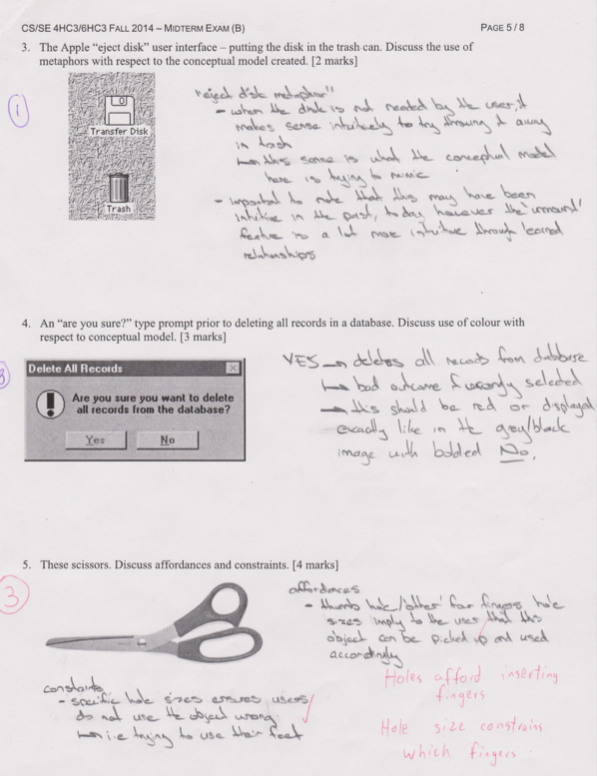 CS/SE 4HC3/6HC3 FALL 2014 – MIDTERM EXAM (B)
PAGE 5 / 8
3. The Apple “eject disk” user interface – putting the disk in the trash can. Discuss the use of
metaphors with respect to the conceptual model created. [2 marks]
1
Transfer Disk
Trash
"eject disk metaphor"
- when the disk is not needed by the user, it
makes sense intuitively to try throwing it away
in trash
↳ this sense is what the conceptual model
here is trying to mimic
- important to note that this may have been
intuitive in the past, today however the 'unmount'
feature is a lot more intuitive through learned
relationships
4. An “are you sure?” type prompt prior to deleting all records in a database. Discuss use of colour with
respect to conceptual model. [3 marks]
3
Delete All Records
Are you sure you want to delete
all records from the database?
Yes No
YES → deletes all records from database
↳ bad outcome if wrongly selected
→ this should be red or displayed
exactly like in the grey/black
image with bolded No.
5. These scissors. Discuss affordances and constraints. [4 marks]
3
affordances
- thumb hole/'other' four fingers hole
sizes imply to the user that this
object can be picked up and used
accordingly
Holes afford inserting
fingers
Hole size constrains
which fingers
constraints
- specific hole sizes ensures users
do not use the object wrong
↳ i.e trying to use their feet